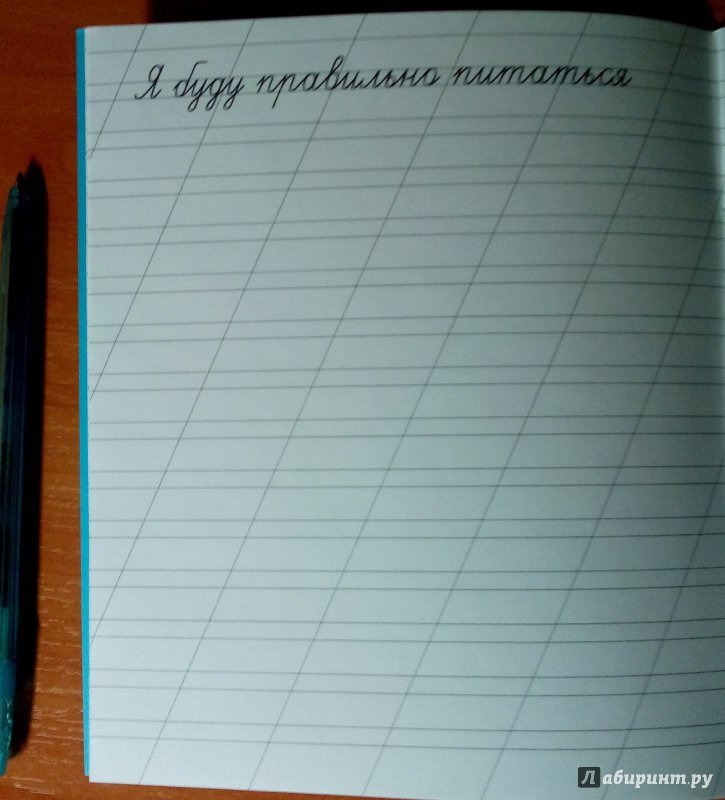 Я буду правильно питаться
Лабиринт.ру